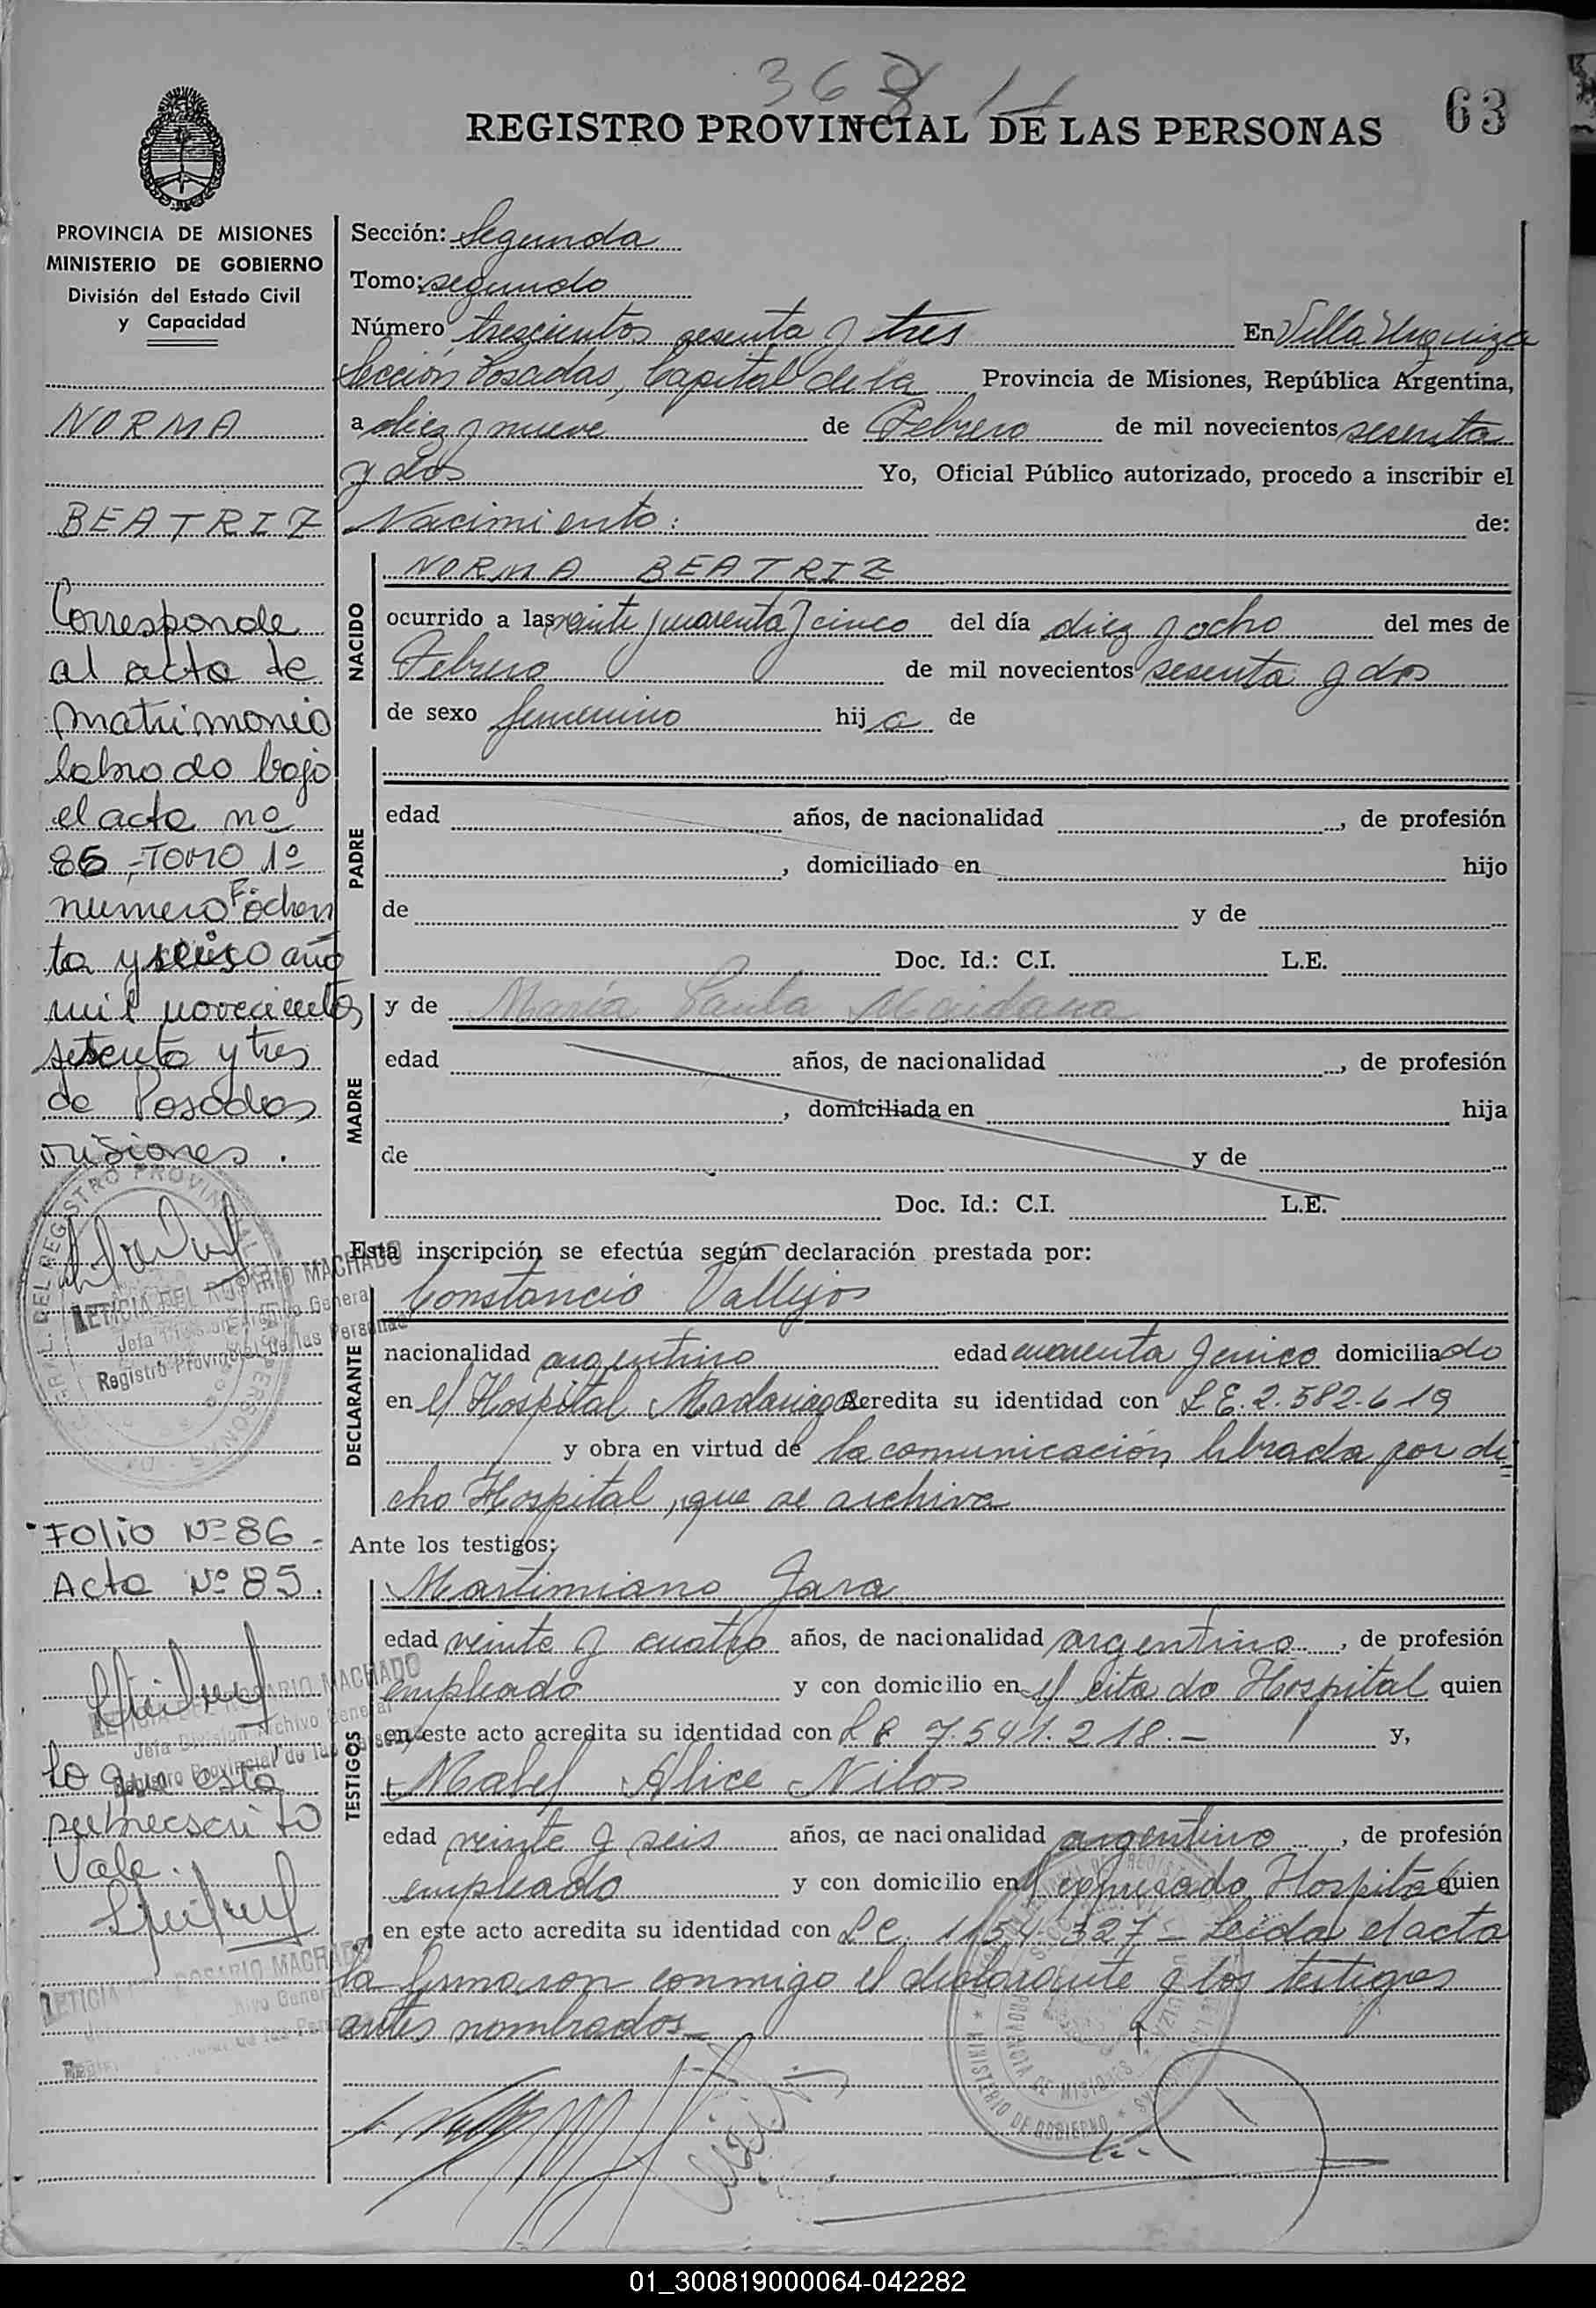 368
REGISTRO PROVINCIAL DE LAS PERSONAS
63
PROVINCIA DE MISIONES
MINISTERIO DE GOBIERNO
División del Estado Civil
y Capacidad
NORMA
BEATRIZ
Corresponde
al acta de
matrimonio
labrado bajo
el acta nº
86 - TOMO 1º
numero F. ochen
ta y seis año
mil novecientos
setenta y tres
de Posadas
Misiones.
DEL REGISTRO PROVINCIAL
LETICIA DEL ROSARIO MACHADO
Jefa División Archivo General
Registro Provincial de las Personas
Folio Nº 86 -
Acta Nº 85.
LETICIA DEL ROSARIO MACHADO
Jefa División Archivo General
Registro Provincial de las Personas
Lo que esta
sobrescrito
Vale.
LETICIA DEL ROSARIO MACHADO
Sección: Segunda
Tomo: segundo
Número trescientos sesenta y tres En Villa Urquiza
Sección Posadas, Capital de la Provincia de Misiones, República Argentina,
a diez y nueve de Febrero de mil novecientos sesenta
y dos Yo, Oficial Público autorizado, procedo a inscribir el
Nacimiento: de:
NACIDO
NORMA BEATRIZ
ocurrido a las veinte y cuarenta y cinco del día diez y ocho del mes de
Febrero de mil novecientos sesenta y dos
de sexo femenino hij a de
PADRE
edad años, de nacionalidad , de profesión
, domiciliado en hijo
de y de
Doc. Id.: C.I. L.E.
MADRE
y de María Paula Maidana
edad años, de nacionalidad , de profesión
, domiciliada en hija
de y de
Doc. Id.: C.I. L.E.
Esta inscripción se efectúa según declaración prestada por:
DECLARANTE
Constancio Vallejos
nacionalidad argentino edad cuarenta y cinco domicilia do
en el Hospital Madariaga Acredita su identidad con L E. 2.582.619
y obra en virtud de la comunicación librada por di
cho Hospital, que se archiva
Ante los testigos:
TESTIGOS
Martimiano Jara
edad veinte y cuatro años, de nacionalidad argentino , de profesión
empleado y con domicilio en el citado Hospital quien
en este acto acredita su identidad con L E 7.541.218.- y,
Mabel Alice Nilos
edad veinte y seis años, de nacionalidad argentino , de profesión
empleado y con domicilio en el expresado Hospital quien
en este acto acredita su identidad con L C. 1154327 - Leída el acta
la firmaron conmigo el declarante y los testigos
antes nombrados -
MINISTERIO DE GOBIERNO
PROVINCIA DE MISIONES
01_300819000064-042282